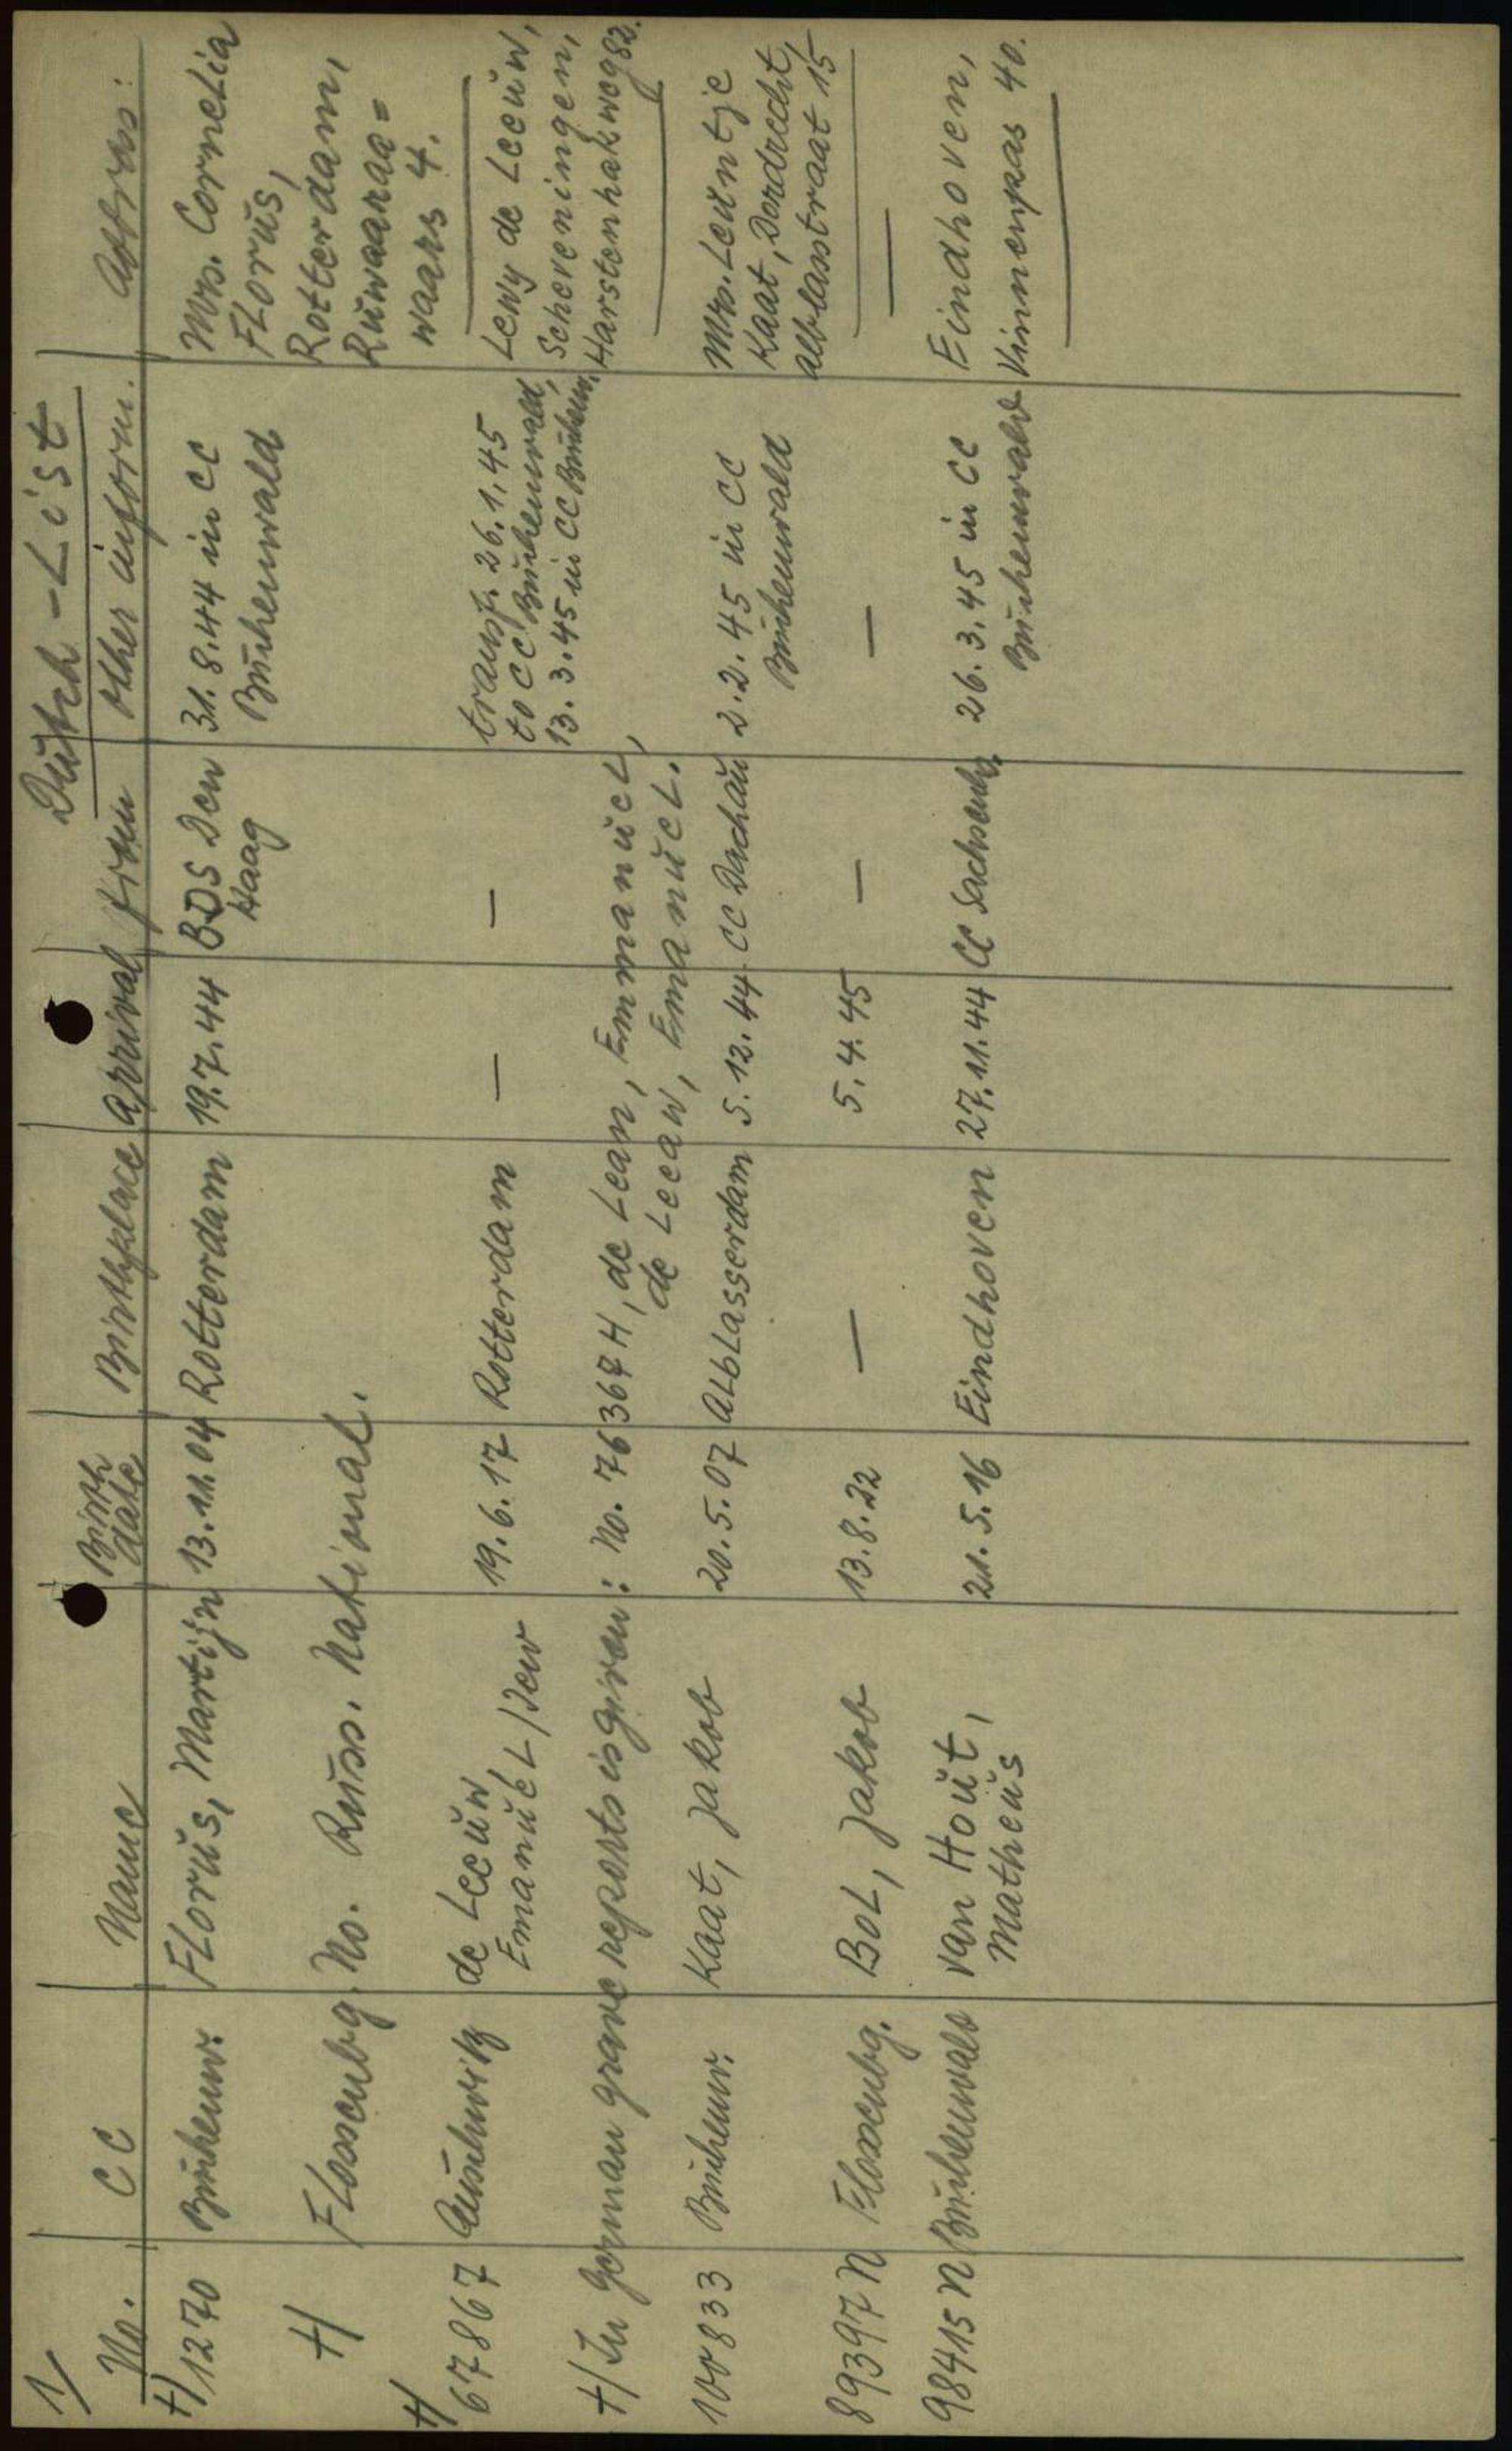 1/ Dutch - List
No. CC Name Birth date Birthplace arrival from other inform. Address:
+/ 1270 Buchenw. Florus, Martijn 13.11.04 Rotterdam 19.7.44 BDS Den Haag 31.8.44 in CC Buchenwald Mrs. Cornelia Florus, Rotterdam, Ruwaaraa= waars 4.
+/ Flossenbg. No. Russ. National.
+/ 67867 Auschwitz de Leeuw, Emanuel / Jew 19.6.17 Rotterdam — — transp. 26.1.45 to CC Buchenwald, 13.3.45 in CC Buchenw. Lewy de Leeuw, Scheveningen, Harstenhakweg 82.
+/ In German grave reports is given: No. 76367 H, de Lean, Emmanuel,
de Leeaw, Emanuel.
100833 Buchenw. Kaat, Jakob 20.5.07 Alblasserdam 5.12.44 CC Dachau 2.2.45 in CC Buchenwald Mrs. Leuntje Kaat, Dordrecht, Alblasstraat 15
89397 N Flossenbg. Bol, Jakob 13.8.22 — 5.4.45 — — —
98415 N Buchenwald van Hout, Matheus 21.5.16 Eindhoven 27.11.44 CC Sachsenhs. 26.3.45 in CC Buchenwald Eindhoven, Vinnenpas 40.